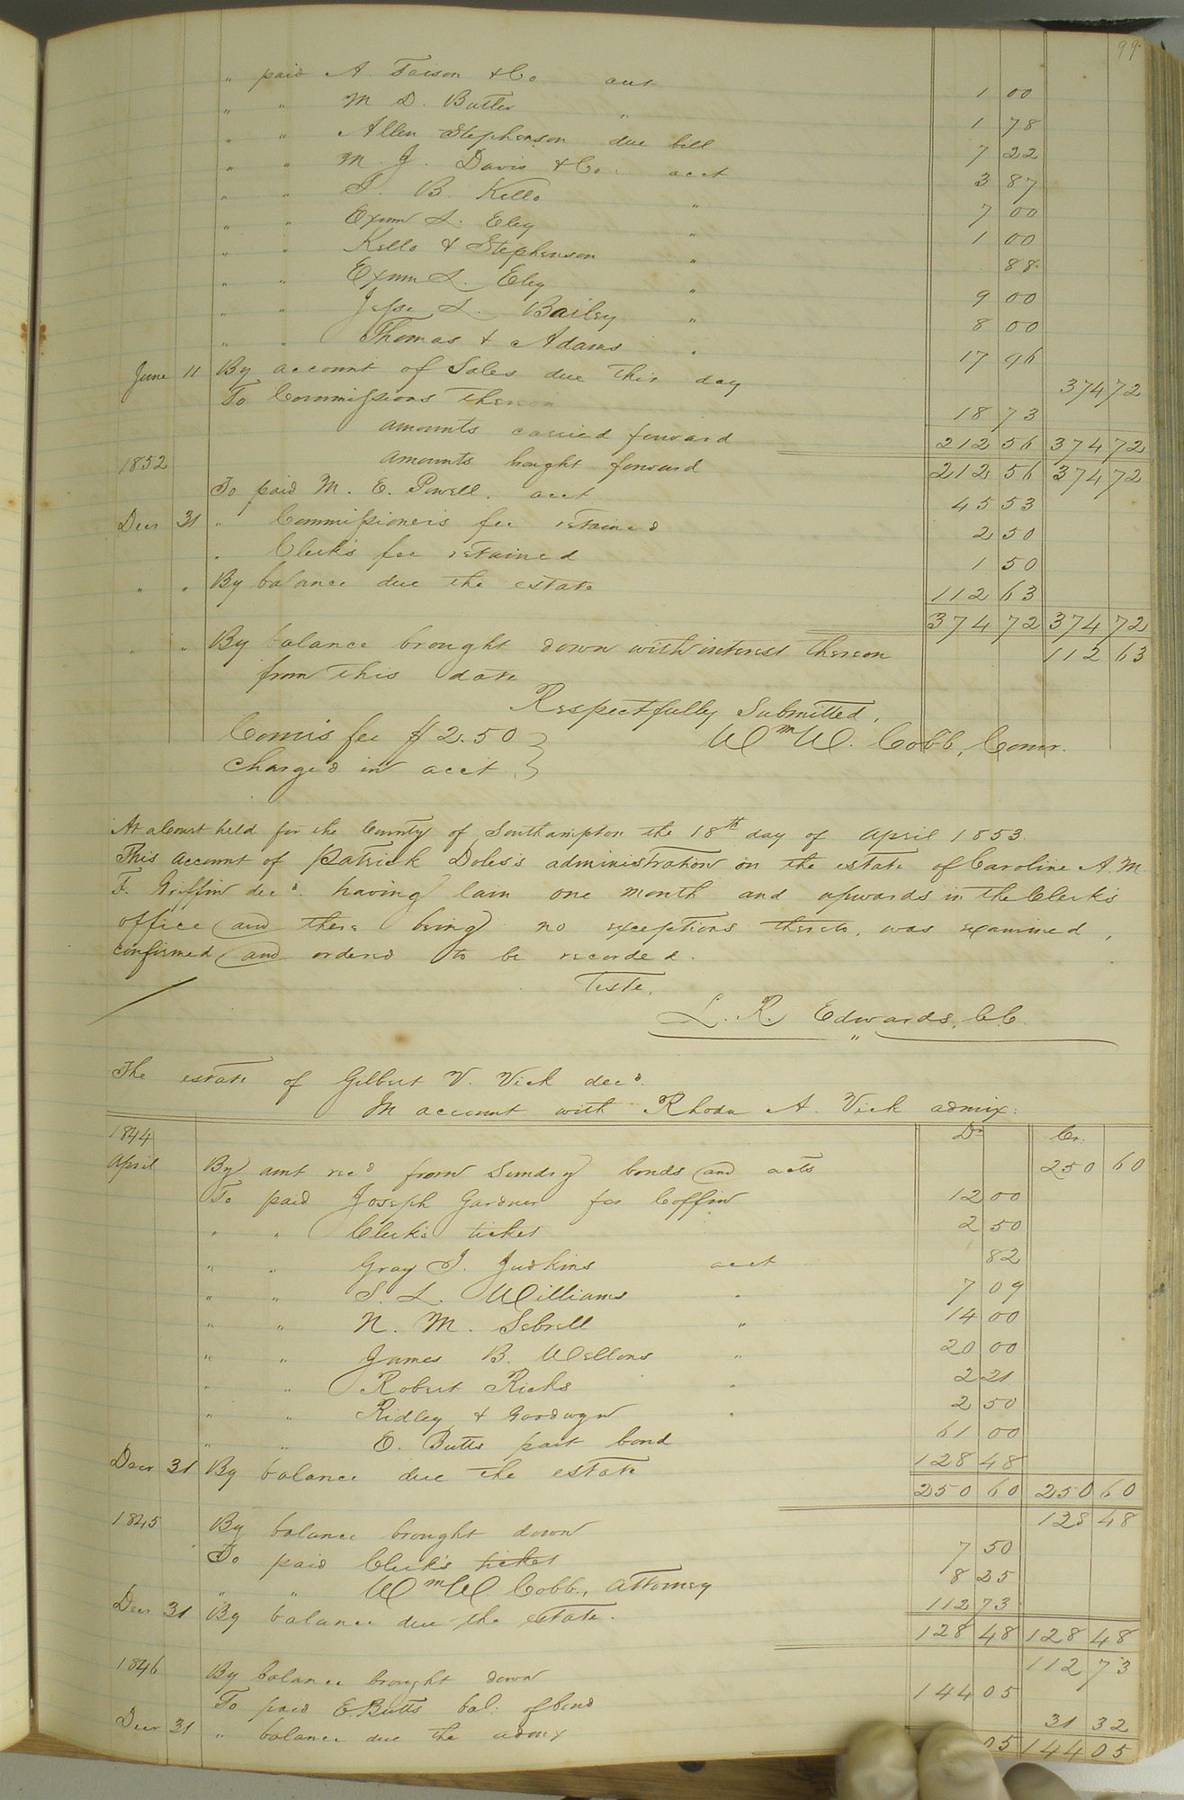 99
" paid A. Faison & Co acct 1 00
" " M. D. Butts " 1 78
" " Allen Stephenson due bill 7 22
" " M. J. Davis & Co. acct 3 87
" " T. B Kello " 7 00
" " Exum L. Eley " 1 00
" " Kello & Stephenson " 88
" " Exum L. Eley " 9 00
" " Jesse L. Bailey " 8 00
" " Thomas & Adams " 17 96
June 11 By account of Sales due this day 374 72
To Commissions thereon 18 73
amounts carried forward 212 56 374 72
1852 amounts bought forward 212 56 374 72
To paid M. E. Powell. acct 45 53
Decr 31 " Commissioners fee retained 2 50
" Clerk's fee retained 1 50
" " By balance due the estate 112 63
374 72 374 72
" " By balance brought down with interest thereon 112 63
from this date
Respectfully Submitted,
Comis fee $2.50 } Wm W. Cobb, Comr.
charged in acct }
At a Court held for the County of Southampton the 18th day of April 1853.
This account of Patrick Doles's administration on the estate of Caroline A. M
F. Griffin decd. having lain one month and upwards in the Clerk's
office and there being no exceptions thereto, was examined,
confirmed and ordered to be recorded.
Teste,
L. R. Edwards, C.C.
The estate of Gilbert V. Vick decd.
In account with Rhoda A. Vick admix:
1844 Dr Cr.
April By amt recd from Sundry bonds and accts 250 60
To paid Joseph Gardner for Coffin 12 00
" " Clerk's ticket 2 50
" " Gray J. Judkins acct 82
" " S. L. Williams " 7 09
" " N. M. Sebrell " 14 00
" " James B. Wellons " 20 00
" " Robert Ricks " 2 21
" " Ridley & Goodwyn " 2 50
" " E. Butts part bond 61 00
Decr 31 By balance due the estate 128 48
250 60 250 60
1845 By balance brought down 128 48
To paid Clerk's ticket 7 50
" " Wm W. Cobb, attorney 8 25
Decr 31 By balance due the estate. 112 73
128 48 128 48
1846 By balance brought down 112 73
To paid E. Butts bal: of bond 144 05
Decr 31 " balance due the admx 31 32
05 144 05